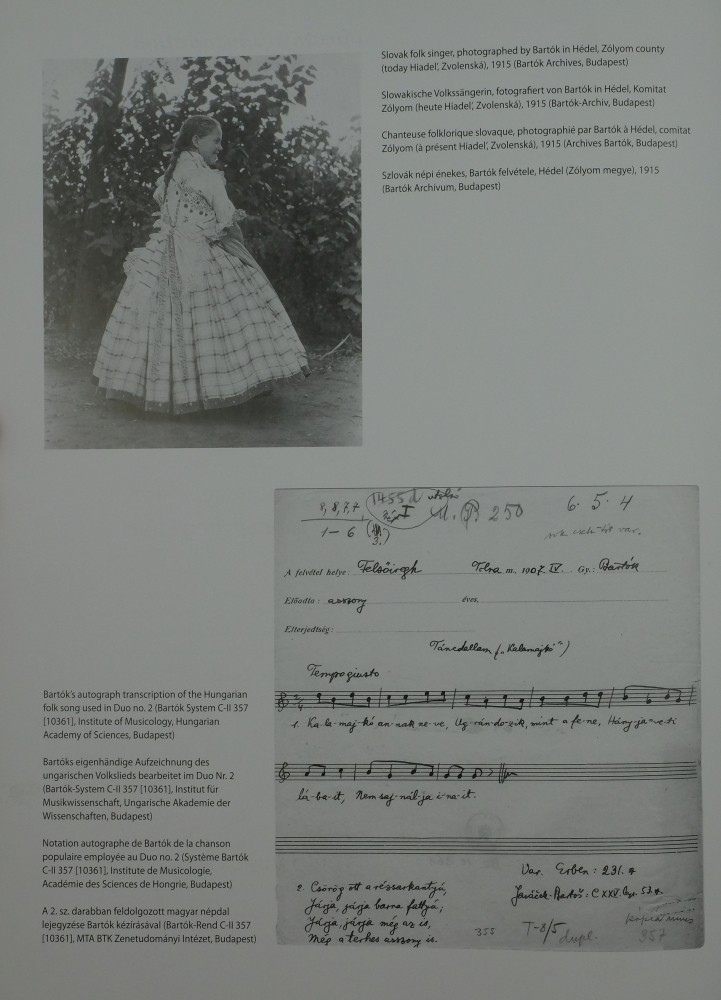 Slovak folk singer, photographed by Bartók in Hédel, Zólyom county
(today Hiadel', Zvolenská), 1915 (Bartók Archives, Budapest)
Slowakische Volkssängerin, fotografiert von Bartók in Hédel, Komitat
Zólyom (heute Hiadel', Zvolenská), 1915 (Bartók-Archiv, Budapest)
Chanteuse folklorique slovaque, photographié par Bartók à Hédel, comitat
Zólyom (à présent Hiadel', Zvolenská), 1915 (Archives Bartók, Budapest)
Szlovák népi énekes, Bartók felvétele, Hédel (Zólyom megye), 1915
(Bartók Archívum, Budapest)
8, 8, 7, 7, 1455 d utolsó
I M. P 250 6 5 4
1–6
A felvétel helye: Felsőiregh Tolna m. 1907. IV. Gy.: Bartók
Előadta: asszony éves,
Elterjedtség:
Táncdallam („Kalamajkó")
Tempo giusto
1. Ka-la-maj-kó an-nak ne-ve, Ug-rán-do-zik, mint a fe-ne, Hány-ja-ve-ti
lá-ba-it, Nem saj-nál-ja i-na-it.
Bartók's autograph transcription of the Hungarian
folk song used in Duo no. 2 (Bartók System C-II 357
[10361], Institute of Musicology, Hungarian
Academy of Sciences, Budapest)
Bartóks eigenhändige Aufzeichnung des
ungarischen Volkslieds bearbeitet im Duo Nr. 2
(Bartók-System C-II 357 [10361], Institut für
Musikwissenschaft, Ungarische Akademie der
Wissenschaften, Budapest)
Notation autographe de Bartók de la chanson
populaire employée au Duo no. 2 (Système Bartók
C-II 357 [10361], Institute de Musicologie,
Académie des Sciences de Hongrie, Budapest)
A 2. sz. darabban feldolgozott magyar népdal
lejegyzése Bartók kézírásával (Bartók-Rend C-II 357
[10361], MTA BTK Zenetudományi Intézet, Budapest)
Var. Erben: 231.
Janáček-Bartoš: C XXV.
2. Csörög ott a rézsarkantyú,
Járja, járja barna fattyú;
Járja, járja még az is,
Még a terhes asszony is.
355 T-8/5 dupl. 357